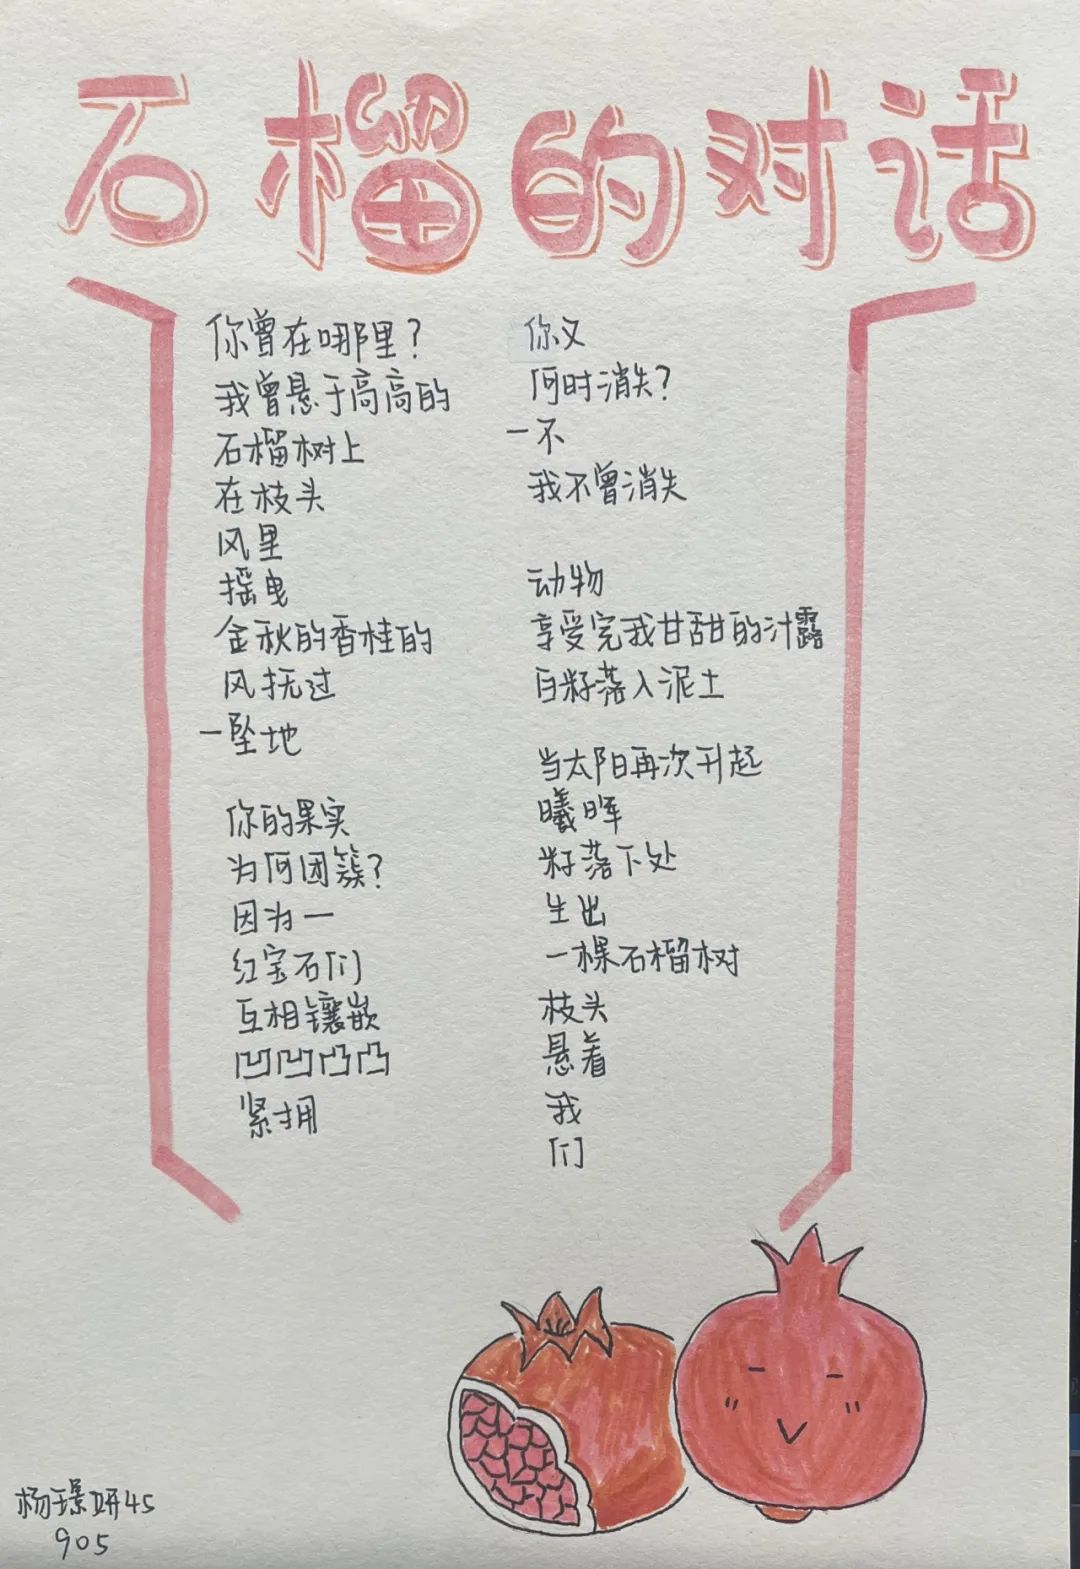 石榴的对话
你曾在哪里？
我曾悬于高高的
石榴树上
在枝头
风里
摇曳
金秋的香桂的
风抚过
一坠地
你的果实
为何团簇？
因为一
红宝石们
互相镶嵌
凹凹凸凸
紧拥
你又
何时消失？
一不
我不曾消失
动物
享受完我甘甜的汁露
白籽落入泥土
当太阳再次升起
曦晖
籽落下处
生出
一棵石榴树
枝头
悬着
我
们
杨璟妍45
905